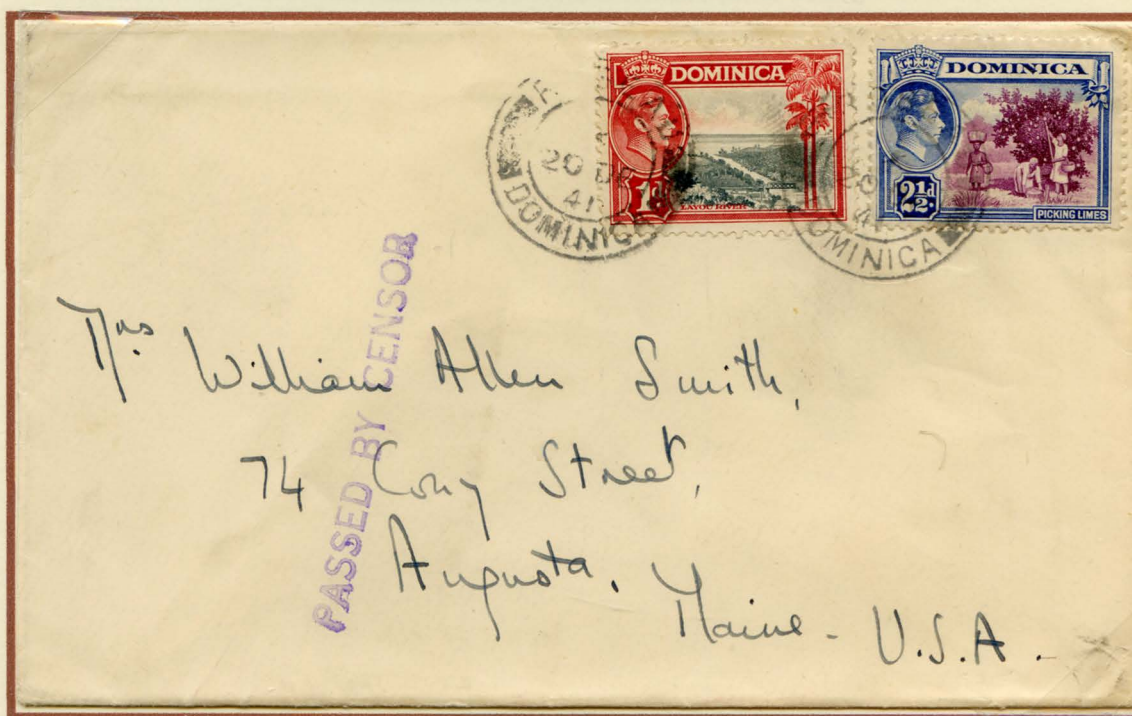 DOMINICA
1d
LAYOU RIVER
DOMINICA
2½d
PICKING LIMES
20 DE
41
DOMINICA
20
41
DOMINICA
PASSED BY CENSOR
Mrs William Allen Smith,
74 Cony Street,
Augusta,
Maine - U.S.A.